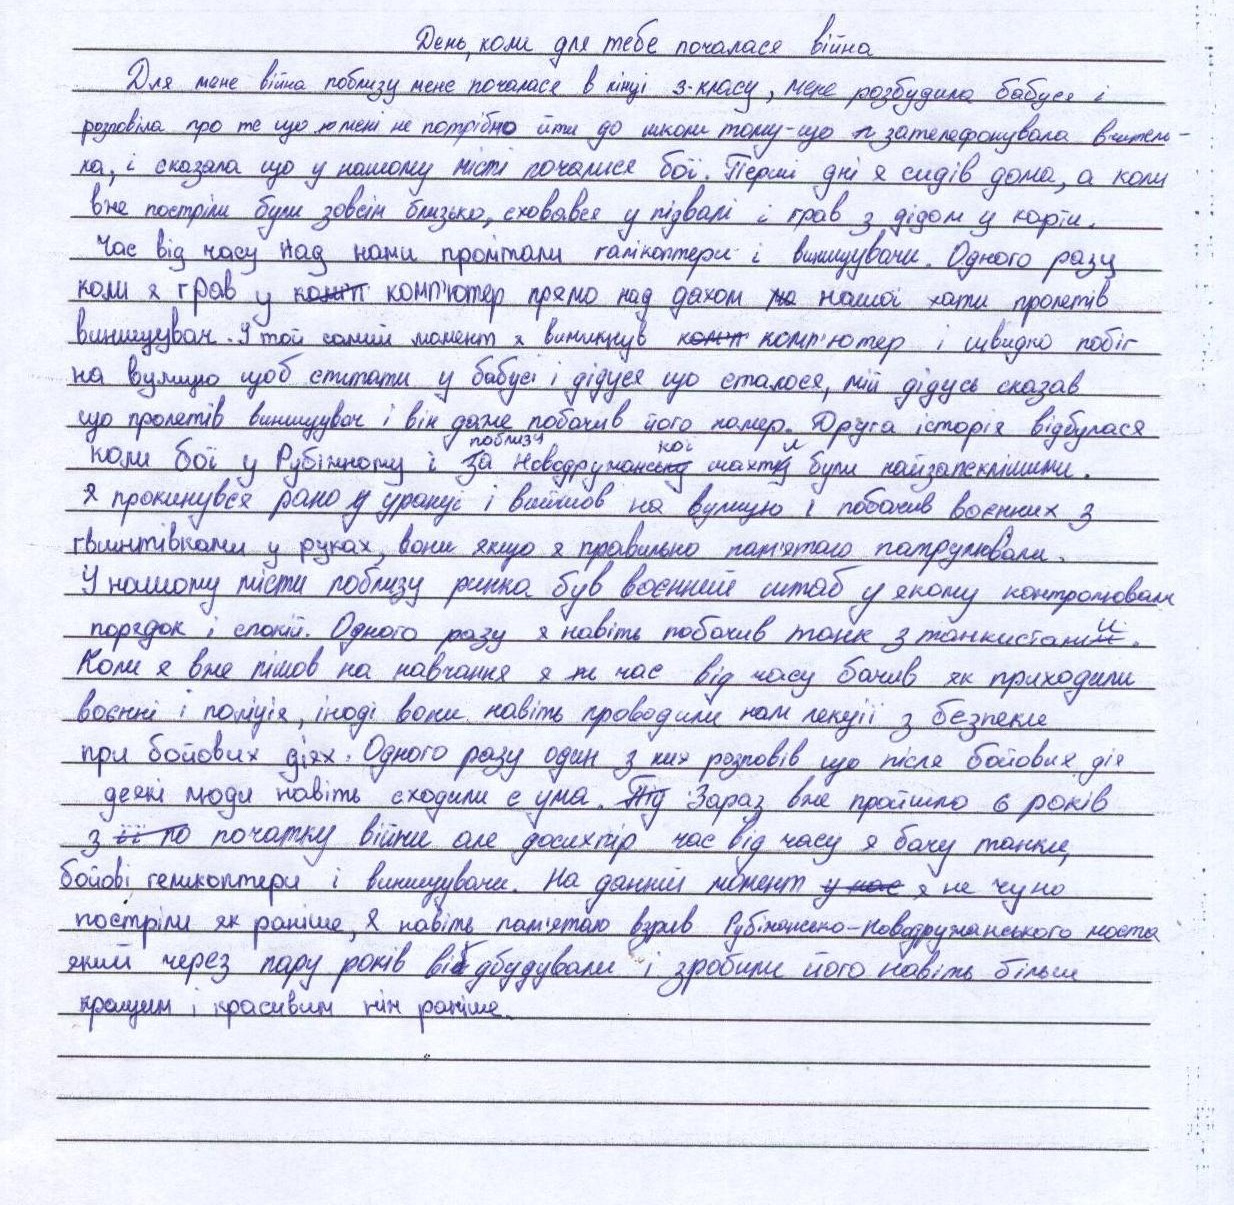 День, коли для тебе почалася війна
Для мене війна поблизу мене почалася в кінці 3-класу, мене розбудила бабуся і
розповіла про те що мені не потрібно йти до школи тому-що зателефонувала вчитель-
ка, і сказала що у нашому місті почалися бої. Перші дні я сидів дома, а коли
вже постріли були зовсім близько, сховався у підвалі і грав з дідом у карти.
Час від часу над нами пролітали гелікоптери і винищувачи. Одного разу
коли я грав у комп'ютер прямо над дахом нашої хати пролетів
винищувач. У той самий момент я вимикнув комп'ютер і швидко побіг
на вулицю щоб спитати у бабусі і дідуся що сталося, мій дідусь сказав
що пролетів винищувач і він даже побачив його номер. Друга історія відбулася
коли бої у Рубіжному і поблизу Новодружанської шахти були найзапеклішими.
Я прокинувся рано уранці і вийшов на вулицю і побачив воєнних з
гвинтівками у руках, вони якщо я правильно пам'ятаю патрулювали.
У нашому місти поблизу ринка був воєнний штаб у якому контролювали
порядок і спокій. Одного разу я навіть побачив танк з танкистами.
Коли я вже пішов на навчання я час від часу бачив як приходили
воєнні і поліція, іноді вони навіть проводили нам лекціі з безпеки
при бойових діях. Одного разу один з них розповів що після бойових дія
деякі люди навіть сходили с ума. Зараз вже пройшло 6 років
з початку війни але досихпір час від часу я бачу танки,
бойові геликоптери і винищувачи. На данний момент я не чую
постріли як раніше, я навіть пам'ятаю взрив Рубіжансько-Новодружанського моста
який через пару років відбудували і зробили його навіть більш
кращим і красивим ніж раніше.